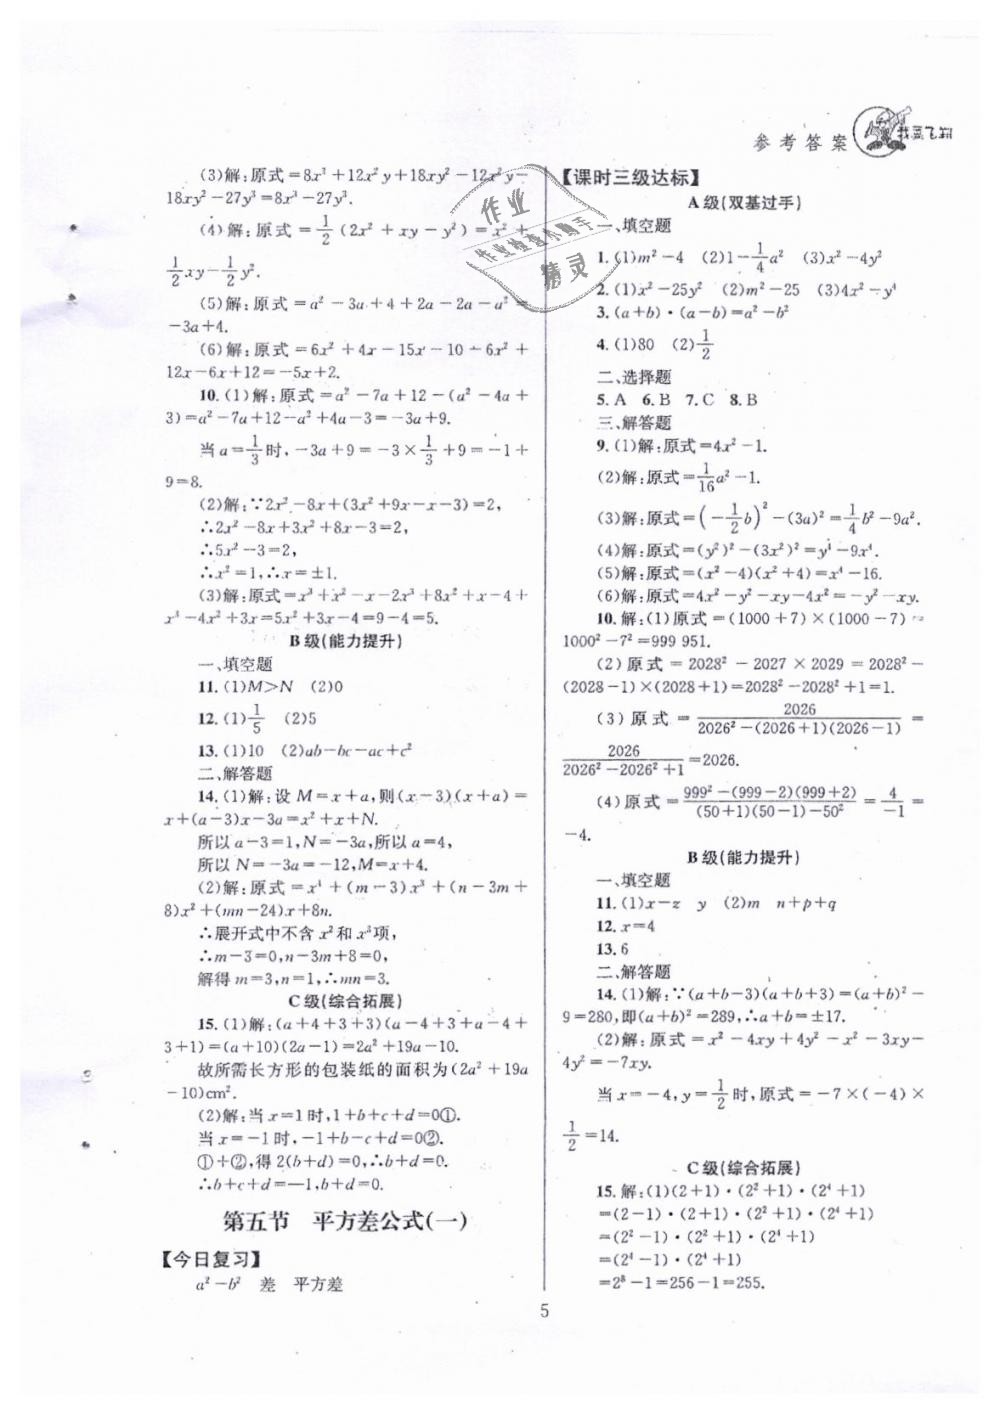 参考答案
我要飞翔
(3)解:原式=8x³+12x²y+18xy²-12x²y-
18xy²-27y³=8x³-27y³.
(4)解:原式=1/2(2x²+xy-y²)=x²+
1/2xy-1/2y².
(5)解:原式=a²-3a+4+2a-2a-a²=
-3a+4.
(6)解:原式=6x²+4x-15x-10-6x²+
12x-6x+12=-5x+2.
10.(1)解:原式=a²-7a+12-(a²-4a+
3)=a²-7a+12-a²+4a-3=-3a+9.
当a=1/3时,-3a+9=-3×1/3+9=-1+
9=8.
(2)解:∵2x²-8x+(3x²+9x-x-3)=2,
∴2x²-8x+3x²+8x-3=2,
∴5x²-3=2,
∴x²=1,∴x=±1.
(3)解:原式=x³+x²-x-2x³+8x²+x-4+
x³-4x²+3x=5x²+3x-4=9-4=5.
B级(能力提升)
一、填空题
11.(1)M>N (2)0
12.(1)1/5 (2)5
13.(1)10 (2)ab-bc-ac+c²
二、解答题
14.(1)解:设M=x+a,则(x-3)(x+a)=
x+(a-3)x-3a=x²+x+N.
所以a-3=1,N=-3a,所以a=4,
所以N=-3a=-12,M=x+4.
(2)解:原式=x⁴+(m-3)x³+(n-3m+
8)x²+(mn-24)x+8n.
∴展开式中不含x²和x³项,
∴m-3=0,n-3m+8=0,
解得m=3,n=1,∴mn=3.
C级(综合拓展)
15.(1)解:(a+4+3+3)(a-4+3+a-4+
3+1)=(a+10)(2a-1)=2a²+19a-10.
故所需长方形的包装纸的面积为(2a²+19a
-10)cm².
(2)解:当x=1时,1+b+c+d=0①.
当x=-1时,-1+b-c+d=0②.
①+②,得2(b+d)=0,∴b+d=0.
∴b+c+d=-1,b+d=0.
第五节 平方差公式(一)
【今日复习】
a²-b² 差 平方差
【课时三级达标】
A级(双基过手)
一、填空题
1.(1)m²-4 (2)1-1/4a² (3)x²-4y²
2.(1)x²-25y² (2)m²-25 (3)4x²-y⁴
3.(a+b)·(a-b)=a²-b²
4.(1)80 (2)1/2
二、选择题
5.A 6.B 7.C 8.B
三、解答题
9.(1)解:原式=4x²-1.
(2)解:原式=1/16a²-1.
(3)解:原式=(-1/2b)²-(3a)²=1/4b²-9a².
(4)解:原式=(y²)²-(3x²)²=y⁴-9x⁴.
(5)解:原式=(x²-4)(x²+4)=x⁴-16.
(6)解:原式=4x²-y²-xy-4x²=-y²-xy.
10.解:(1)原式=(1000+7)×(1000-7)=
1000²-7²=999 951.
(2)原式=2028²-2027×2029=2028²-
(2028-1)×(2028+1)=2028²-2028²+1=1.
(3)原式=2026/(2026²-(2026+1)(2026-1))=
2026/(2026²-2026²+1)=2026.
(4)原式=(999²-(999-2)(999+2))/((50+1)(50-1)-50²)=4/-1=
-4.
B级(能力提升)
一、填空题
11.(1)x-z y (2)m n+p+q
12.x=4
13.6
二、解答题
14.(1)解:∵(a+b-3)(a+b+3)=(a+b)²-
9=280,即(a+b)²=289,∴a+b=±17.
(2)解:原式=x²-4xy+4y²-x²-3xy-
4y²=-7xy.
当x=-4,y=1/2时,原式=-7×(-4)×
1/2=14.
C级(综合拓展)
15.解:(1)(2+1)·(2²+1)·(2⁴+1)
=(2-1)·(2+1)·(2²+1)·(2⁴+1)
=(2²-1)·(2²+1)·(2⁴+1)
=(2⁴-1)·(2⁴+1)
=2⁸-1=256-1=255.
5
作业
作业检查小助手
精灵